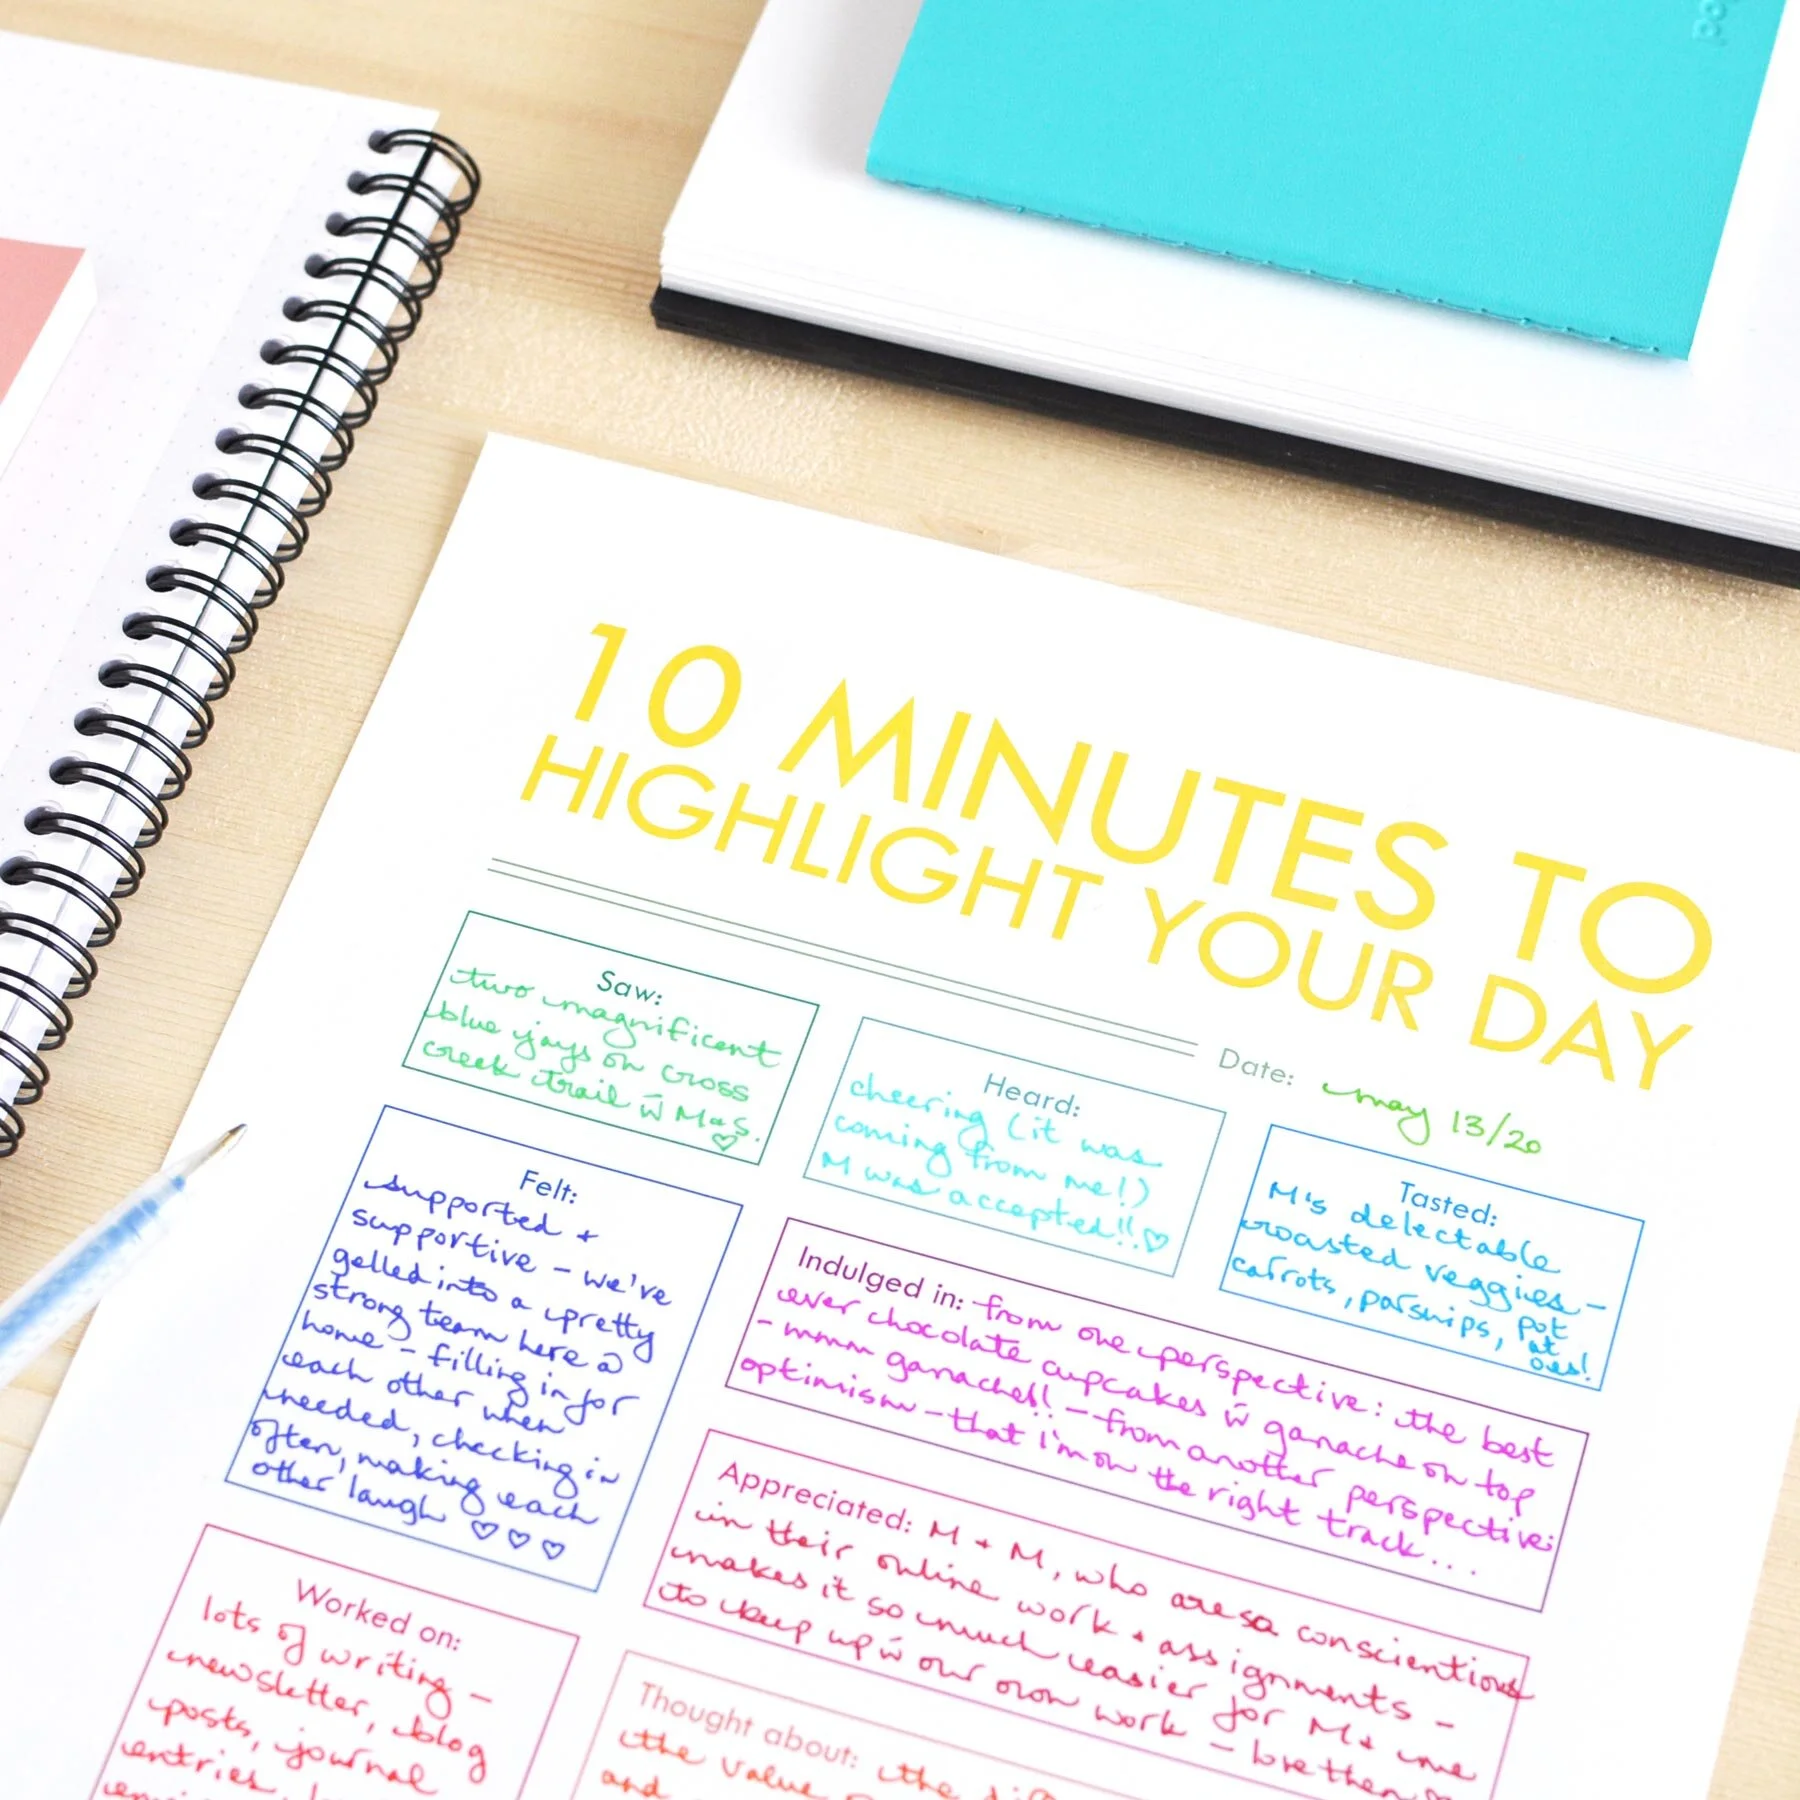 10 MINUTES TO
HIGHLIGHT YOUR DAY
Date: may 13/20
Saw:
two magnificent
blue jays on cross
creek trail w̄ M+S.
♡
Heard:
cheering (it was
coming from me!)
M was accepted!! ♡
Tasted:
M's delectable
roasted veggies -
carrots, parsnips, pot
at
oes!
Felt:
supported +
supportive - we've
gelled into a pretty
strong team here @
home - filling in for
each other when
needed, checking in
often, making each
other laugh ♡ ♡ ♡
Indulged in: from one perspective: the best
ever chocolate cupcakes w̄ ganache on top
- mmm ganache!! - from another perspective:
optimism - that i'm on the right track...
Appreciated: M + M, who are so conscientious
in their online work + assignments -
makes it so much easier for M + me
to keep up w̄ our own work - love them ♡
Worked on:
lots of writing -
newsletter, blog
posts, journal
entries,
Thought about: the
the value
and